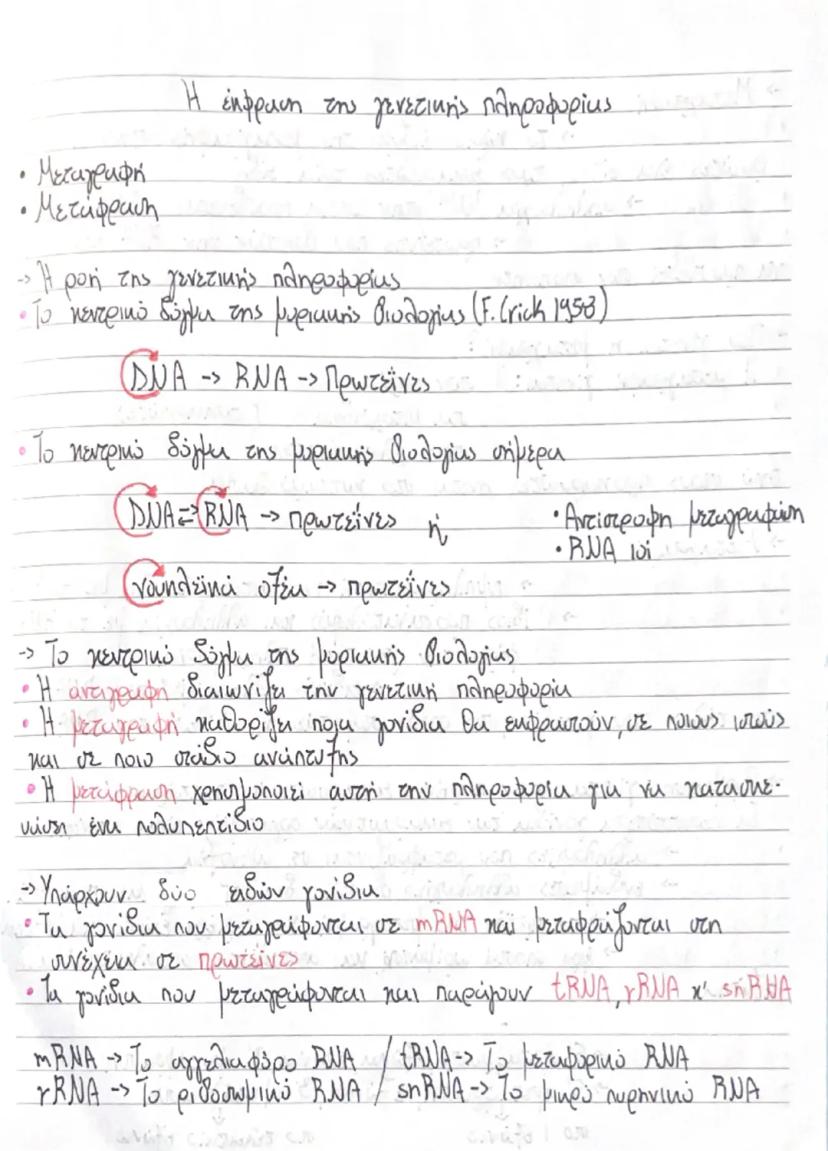 Η έκφραση της γενετικής πληροφορίας
• Μεταγραφή
• Μετάφραση
-> Η ροή της γενετικής πληροφορίας
• Το κεντρικό δόγμα της μοριακής βιολογίας (F. Crick 1958)
DNA -> RNA -> Πρωτεΐνες
• Το κεντρικό δόγμα της μοριακής βιολογίας σήμερα
DNA ⇄ RNA -> πρωτεΐνες ή • Αντίστροφη μεταγραφάση
• RNA ιοί
νουκλεϊκά οξέα -> πρωτεΐνες
-> Το κεντρικό δόγμα της μοριακής βιολογίας
• Η αντιγραφή διαιωνίζει την γενετική πληροφορία
• Η μεταγραφή καθορίζει ποια γονίδια θα εκφραστούν, σε ποιους ιστούς
και σε ποιο στάδιο ανάπτυξης
• Η μετάφραση χρησιμοποιεί αυτή την πληροφορία για να κατασκε-
υάση ένα πολυπεπτίδιο
-> Υπάρχουν δύο ειδών γονίδια
• Τα γονίδια που μεταγράφονται σε mRNA και μεταφράζονται στη
συνέχεια σε πρωτεΐνες
• Τα γονίδια που μεταγράφονται και παράγουν tRNA, rRNA κ' snRNA
mRNA -> Το αγγελιαφόρο RNA / tRNA -> Το μεταφορικό RNA
rRNA -> Το ριβοσωμικό RNA / snRNA -> Το μικρό πυρηνικό RNA